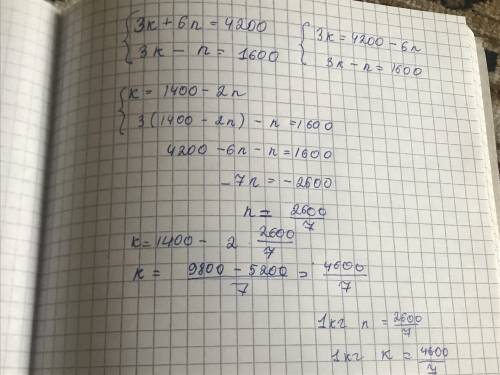 {3к + 6п = 4200
{3к - п = 1600
{3к = 4200 - 6п
3к - п = 1600
{к = 1400 - 2п
{3(1400 - 2п) - п = 1600
4200 - 6п - п = 1600
-7п = -2600
п = 2600/7
к = 1400 - 2 2600/7
к = 9800 - 5200/7 = 4600/7
1кг п = 2600/7
1кг к = 4600/7